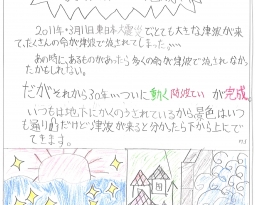 2011年3月11日東日本大震災でとても大きな津波が来
て、たくさんの命が津波で流されてしまった。
あの時に、あるものがあったら多くの命が津波で流されなかっ
たかもしれない。
だがそれから30年…ついに動く防波ていが完成。
いつもは地下にかくのうされているから景色はいつ
も通り
だけど津波が来ると分かったら下から上にで
てきます。